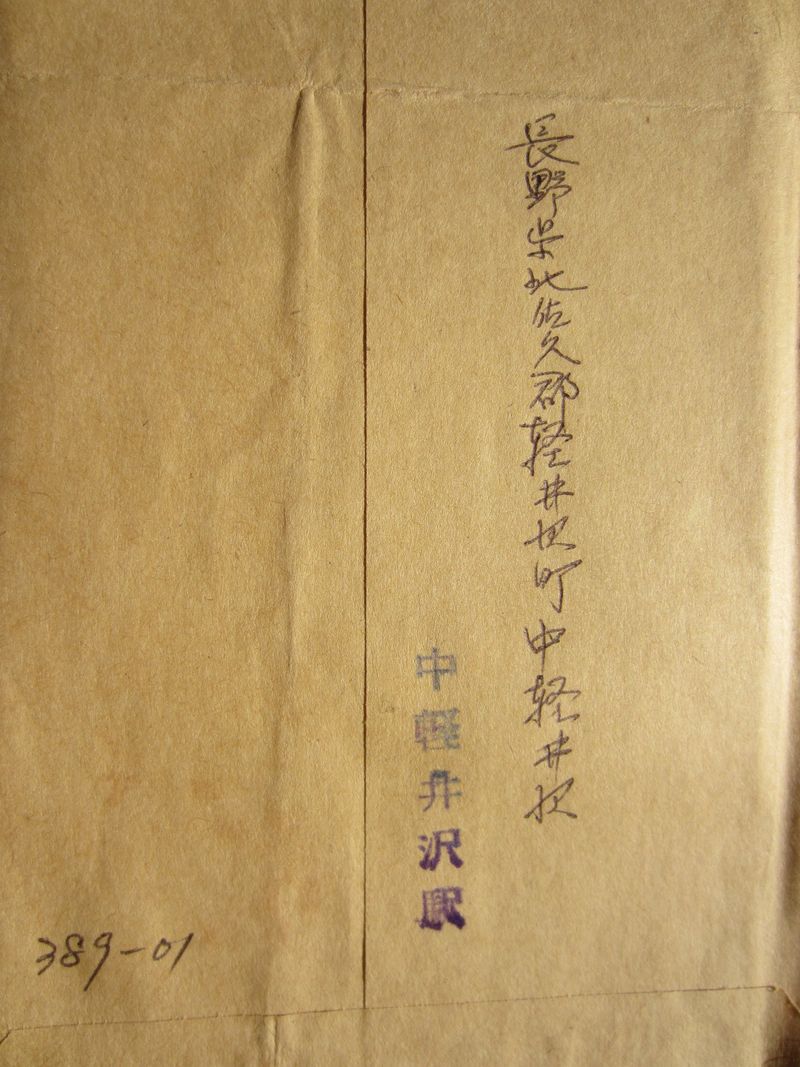 長野県北佐久郡軽井沢町中軽井沢
中軽井沢駅
389-01